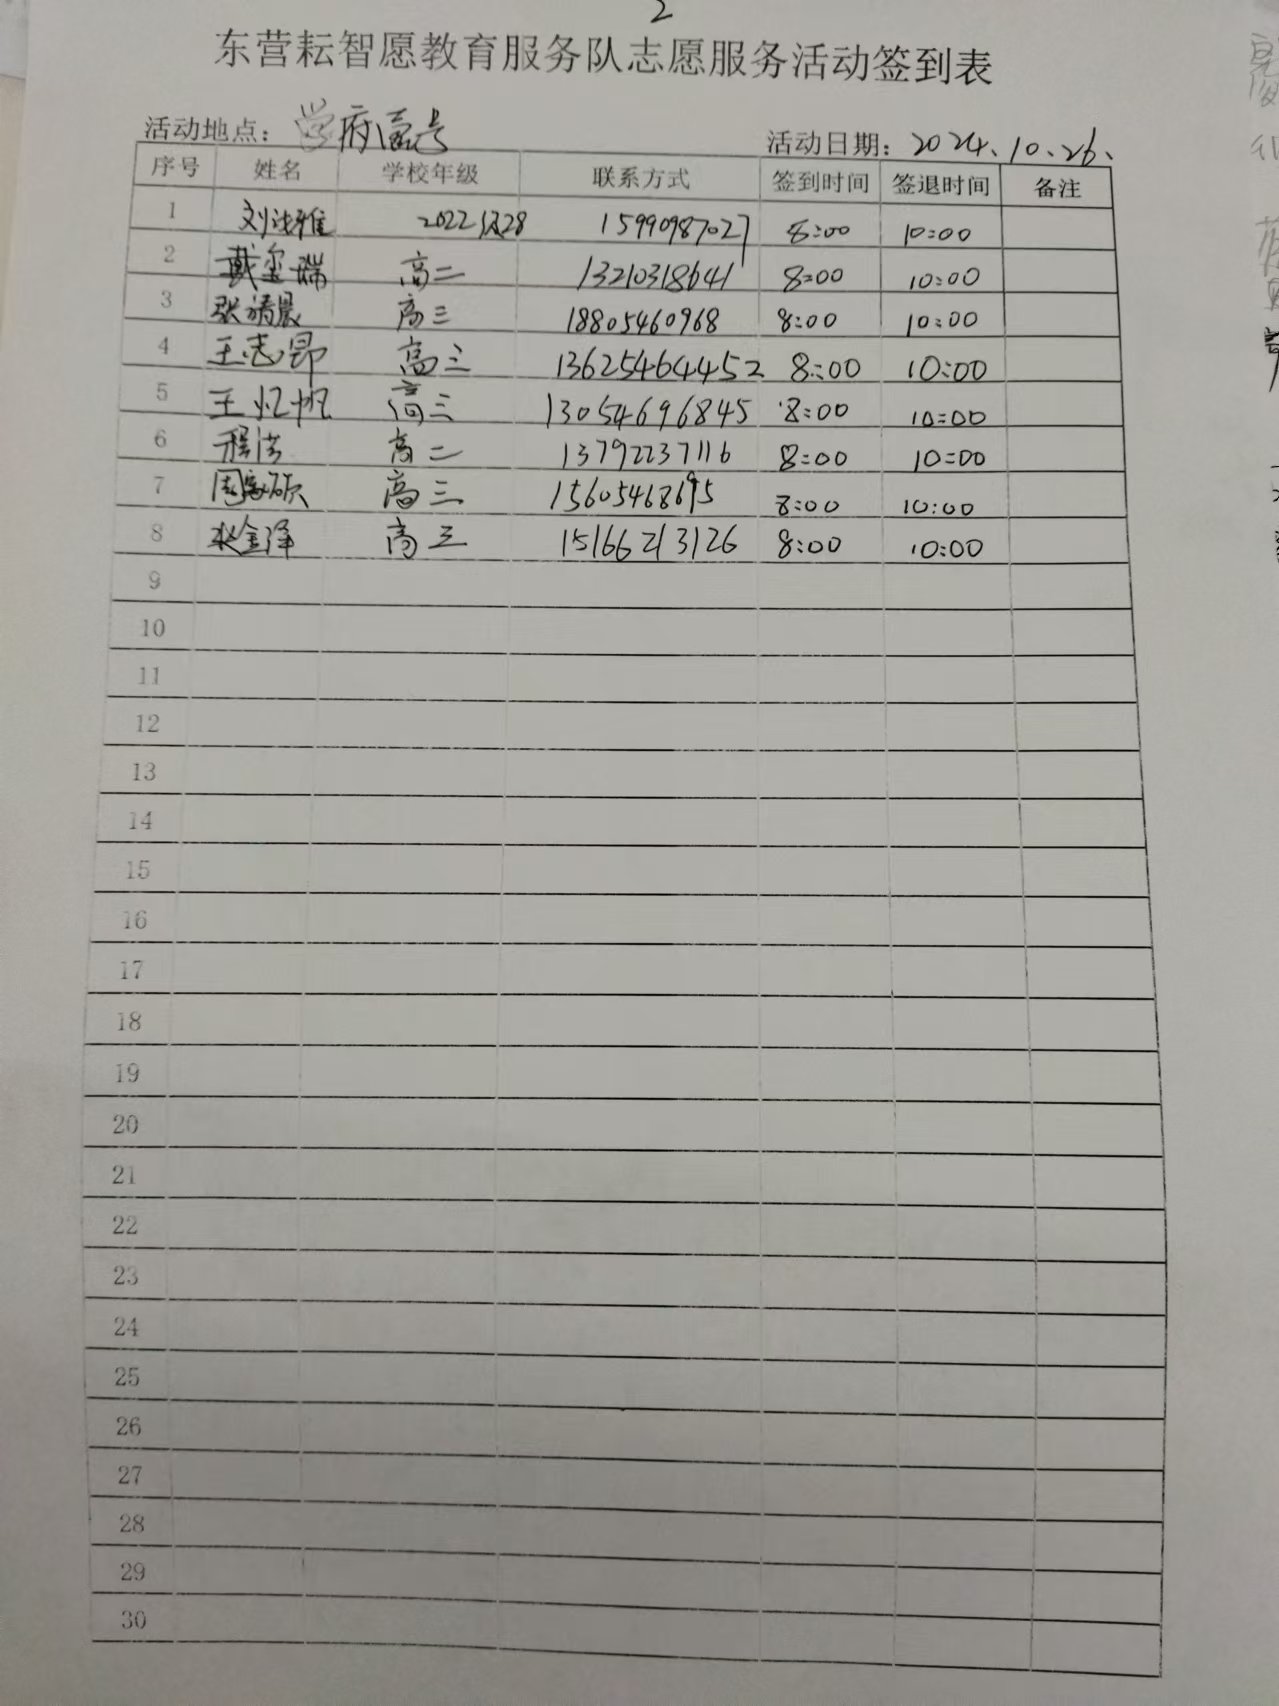 2
东营耘智愿教育服务队志愿服务活动签到表
活动地点： 学府
活动日期：2024.10.26.
序号 姓名 学校年级 联系方式 签到时间 签退时间 备注
1 刘 2022级28 15990987027 8:00 10:00
2 戴玺瑞 高二 13210318641 8:00 10:00
3 张靖晨 高三 18805460968 8:00 10:00
4 王志昂 高三 13625464452 8:00 10:00
5 王忆帆 高三 13054696845 8:00 10:00
6 程洁 高二 13792237116 8:00 10:00
7 周家硕 高三 15605468695 8:00 10:00
8 张金泽 高三 15166213126 8:00 10:00
9
10
11
12
13
14
15
16
17
18
19
20
21
22
23
24
25
26
27
28
29
30